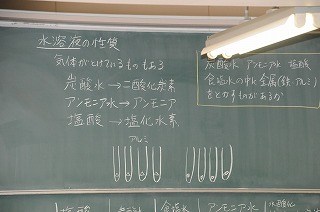 水溶液の性質
気体がとけているものもある
炭酸水→二酸化炭素
アンモニア水→アンモニア
塩酸→塩化水素
アルミ
炭酸水 アンモニア水 塩酸
食塩水の中に金属(鉄・アルミ)
をとかすものがあるか
塩酸
食塩水
アンモニア水